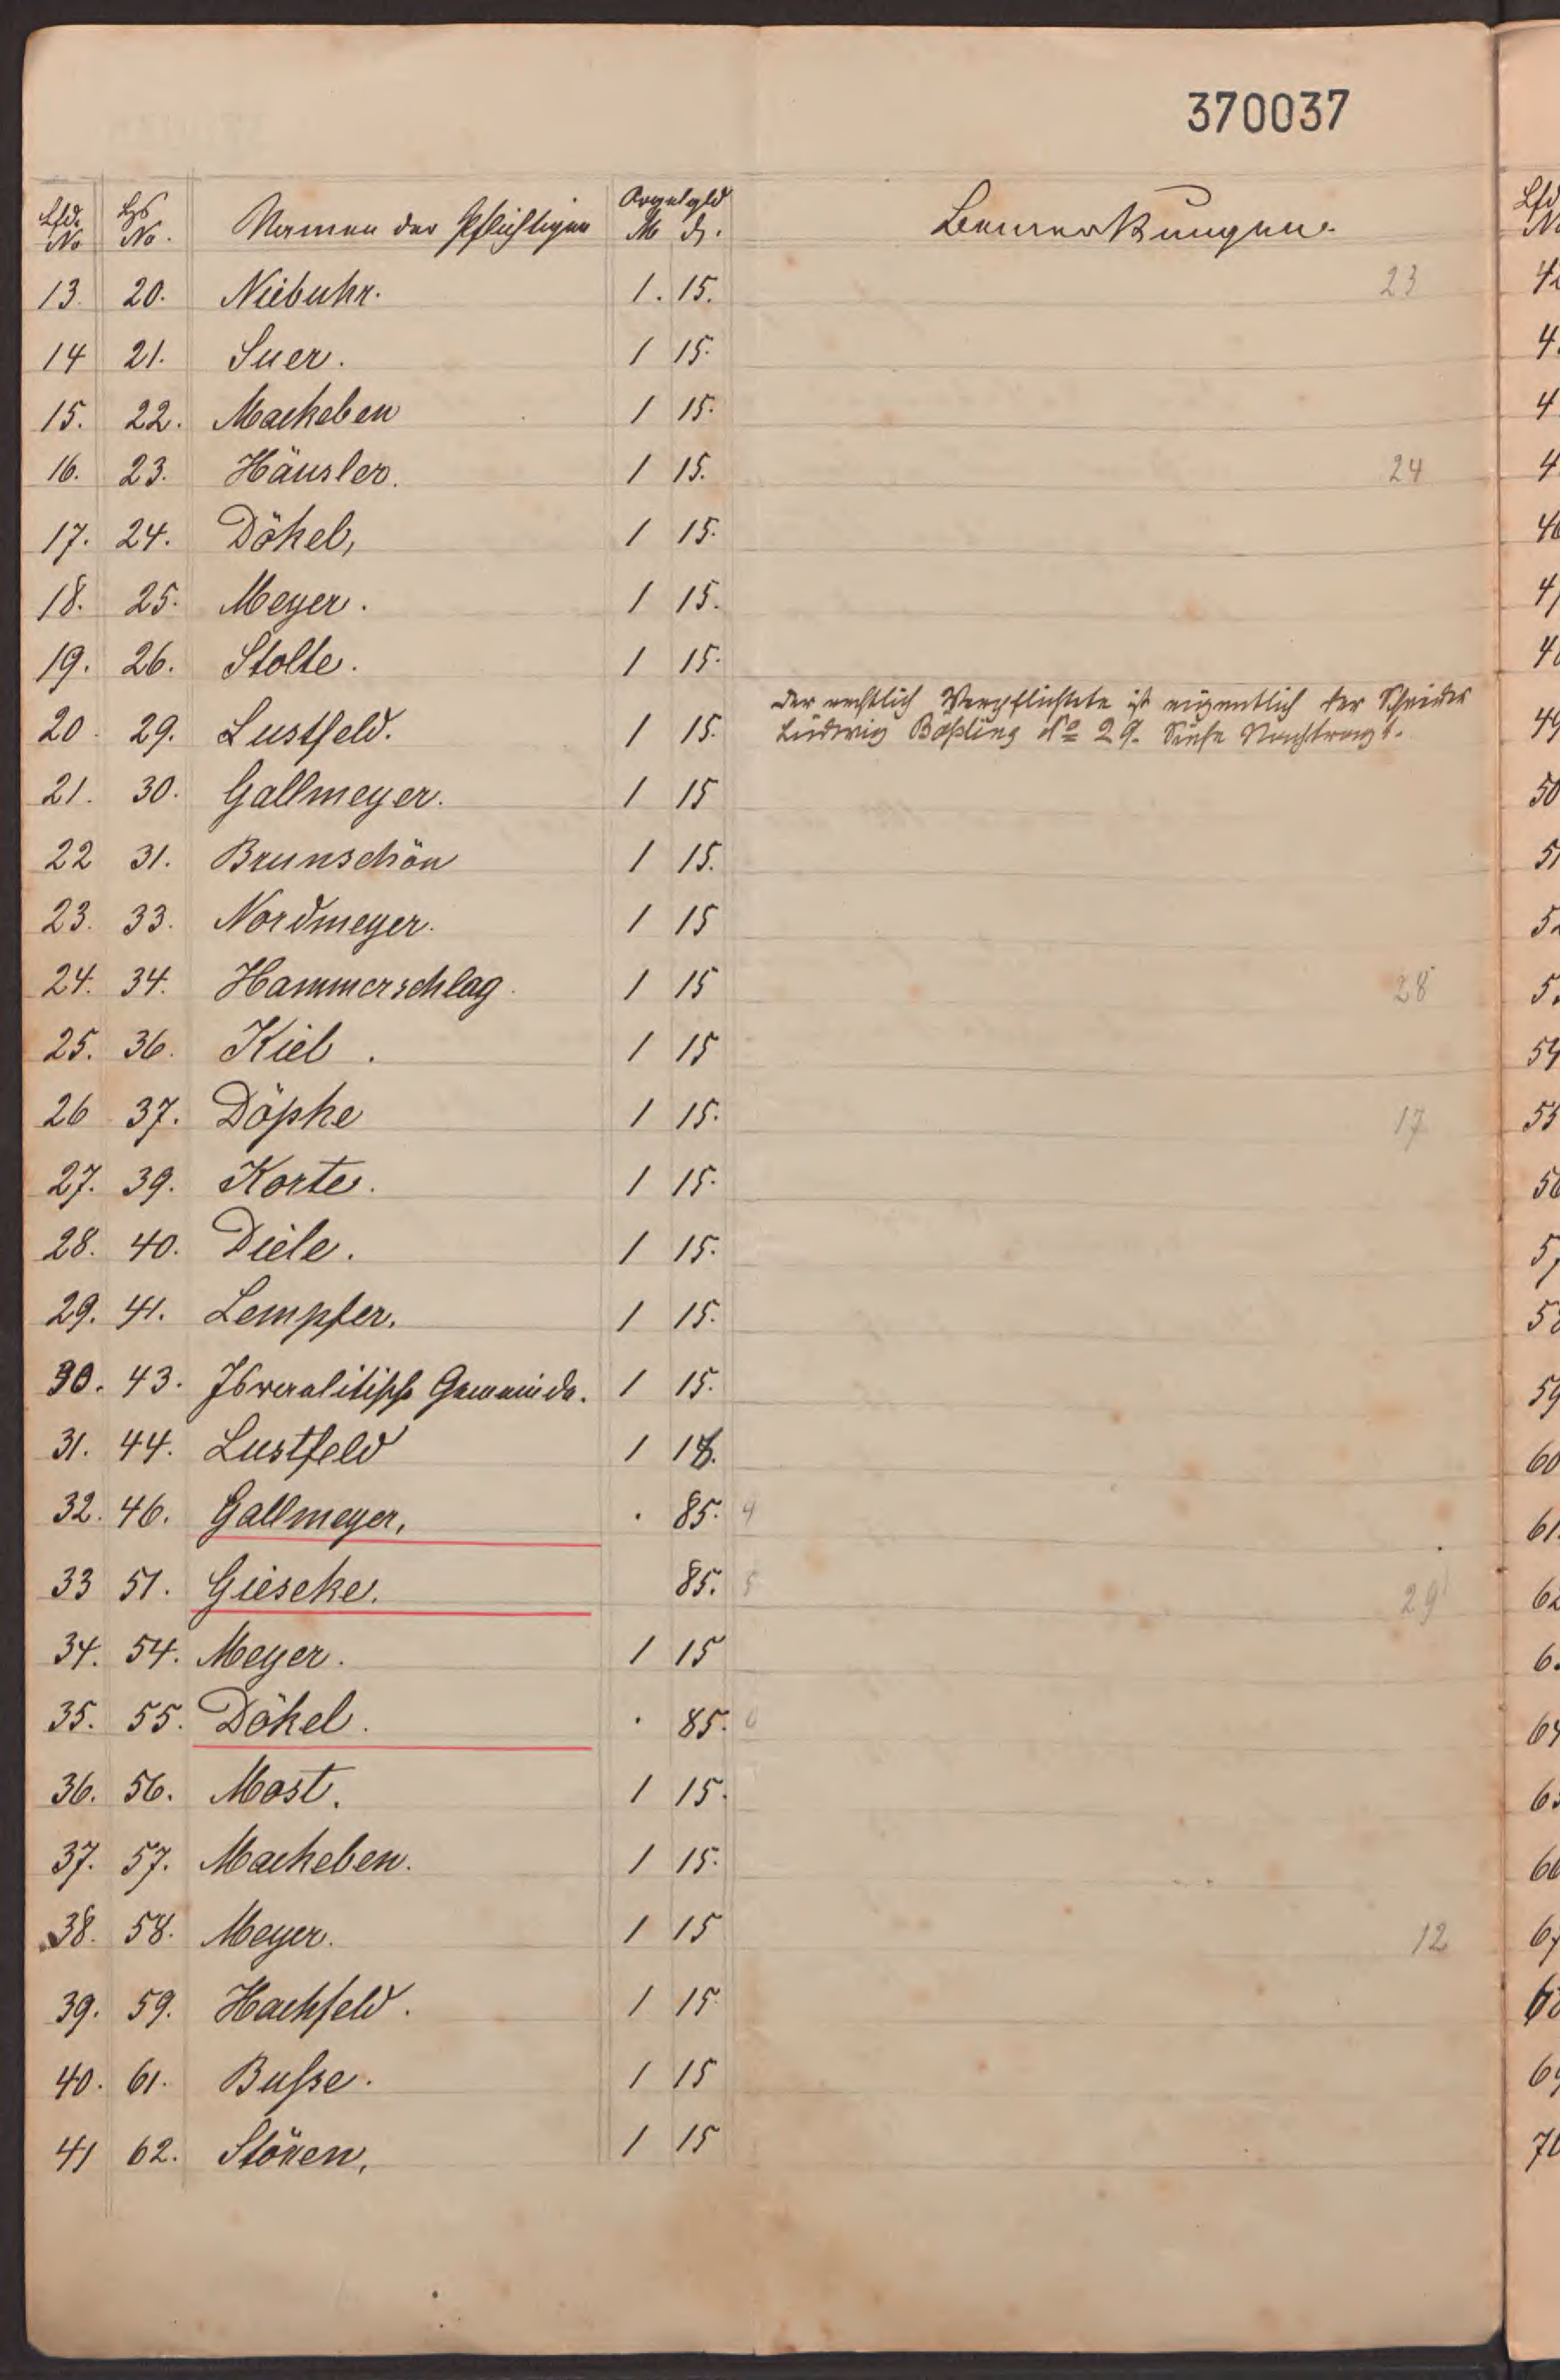 370037
Lfd. No Hs No. Namen der Pflichtigen Orgelgeld M ₰. Bemerkungen.
13. 20. Niebuhr. 1. 15. 23
14 21. Suer. 1 15.
15. 22. Mackeben 1 15.
16. 23. Häusler. 1 15. 24
17. 24. Dökel, 1 15.
18. 25. Meyer. 1 15.
19. 26. Stolte. 1 15.
Der rechtlich Verpflichtete ist eigentlich der
20. 29. Lustfeld. 1 15. Ludwig No 29. Siehe Nachtrag
21. 30. Gallmeyer. 1 15
22 31. Brunschön 1 15.
23. 33. Nordmeyer. 1 15
24. 34. Hammerschlag. 1 15 28
25. 36. Kiel. 1 15
26 37. Döpke 1 15. 17
27. 39. Korte. 1 15.
28. 40. Diele. 1 15.
29. 41. Lempfer. 1 15.
30. 43. Gemeinde. 1 15.
31. 44. Lustfeld 1
32. 46. Gallmeyer, . 85. 4
33 51. Gieseke. 85. 5 29
34. 54. Meyer. 1 15
35. 55. Dökel. . 85.
36. 56. Most. 1 15.
37. 57. Mackeben. 1 15.
38. 58. Meyer. 1 15 12
39. 59. Hachfeld. 1 15
40. 61. Buſse. 1 15
41 62. 1 15